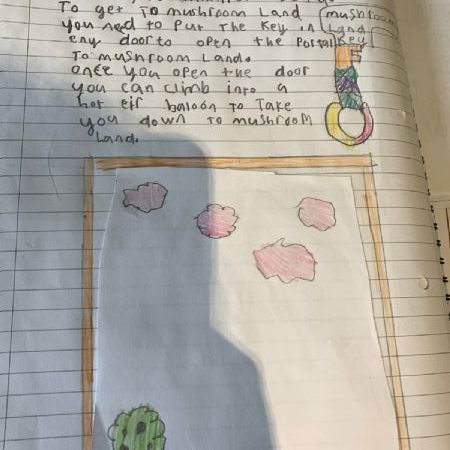 To get To mushroom Land
you need to Put The Key in
eny door to open the Portal
To mushroom Land.
once you open the door
you can climb into a
hot eir baloon to Take
you down to mushroom
Land.
mushroom
Land
Key